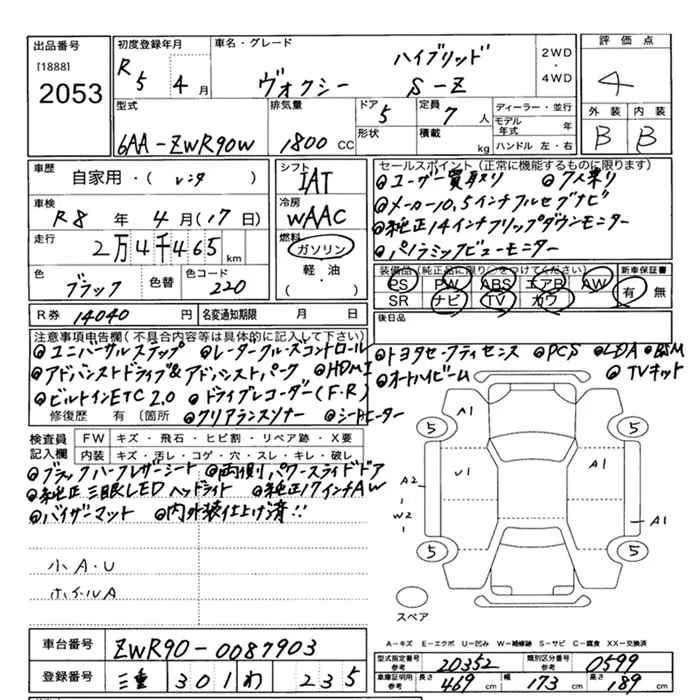 出品番号 [1888] 2053
初度登録年月 R 5 4 月
車名・グレード ハイブリッド ヴォクシー S-Z
2WD・4WD
評価点 4
外装 B 内装 B
型式 6AA-ZWR90W
排気量 1800 CC
ドア 5 形状
定員 7 人 積載 kg
ディーラー・並行
モデル年式 年
ハンドル 左・右
車歴 自家用・( レンタ )
シフト IAT
車検 R8 年 4 月 (17 日)
冷房 WAAC
走行 2万4千465 km
燃料 ガソリン 軽・油 ・( )
色 ブラック 色替 色コード 220
セールスポイント(正常に機能するものに限ります)
◎ユーザー買取り ◎7人乗り
◎メーカー10.5インチフルセグナビ
◎純正14インチフリップダウンモニター
◎パノラミックビューモニター
装備品(純正品に限り○をつけてください)
PS PW ABS エアB AW
SR ナビ TV カワ
新車保証書 有 無
R券 14040 円 名変通知期限 月 日
後日品
注意事項申告欄(不具合内容等は具体的に記入して下さい)
◎ユニバーサルステップ ◎レーダークルーズコントロール ◎トヨタセーフティセンス ◎PCS ◎LDA ◎BSM
◎アドバンストドライブ&アドバンストパーク ◎HDMI ◎オートハイビーム ◎TVキット
◎ビルトインETC2.0 ◎ドライブレコーダー(F.R)
修復歴 有 (箇所 ◎クリアランスソナー ◎シートヒーター
検査員記入欄
FW キズ・飛石・ヒビ割・リペア跡・X要
内装 キズ・汚レ・コゲ・穴・スレ・キレ・破レ
◎ブラックハーフレザーシート ◎両側パワースライドドア
◎純正三眼LEDヘッドライト ◎純正17インチAW
◎バイザーマット ◎内外装仕上げ済!!
小A・U
ホイールA
A1
5 5
A2 U1 A1
W2 A1
5 5
スペア
A-キズ E-エクボ U-凹み W-補修跡 S-サビ C-腐食 XX-交換済
車台番号 ZWR90-0087903
登録番号 三重 301 わ 235
型式指定番号 参考 20352 類別区分番号 参考 0599
車庫証明用 参考 長さ 469 cm 幅 173 cm 高さ 189 cm